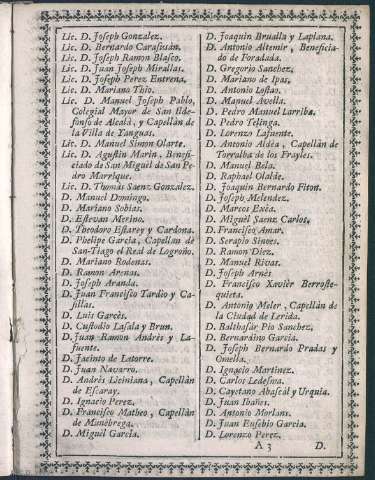 Lic. D. Joseph Gonzalez.
Lic. D. Bernardo Carasusán.
Lic. D. Joseph Ramon Blasco.
Lic. D. Juan Joseph Mirallas.
Lic. D. Joseph Perez Entrena.
Lic. D. Mariano Thio.
Lic. D. Manuel Joseph Pablo,
Colegial Mayor de San Ilde-
fonso de Alcalá, y Capellàn de
la Villa de Yanguas.
Lic. D. Manuel Simon Olarte.
Lic. D. Agustin Marin, Benefi-
ciado de San Miguèl de San Pe-
dro Manrique.
Lic. D. Thomás Saenz Gonzalez.
D. Manuel Domingo.
D. Mariano Sobias.
D. Estevan Merino.
D. Theodoro Estarey y Cardona.
D. Phelipe Garcia, Capellan de
San-Tiago el Real de Logroño.
D. Mariano Rodenas.
D. Ramon Arenas.
D. Joseph Aranda.
D. Juan Francisco Tardio y Ca-
sillas.
D. Luis Garcès.
D. Custodio Lasala y Brun.
D. Juan Ramon Andrès y La-
fuente.
D. Jacinto de Latorre.
D. Juan Navarro.
D. Andrès Liciniana, Capellàn
de Escaray.
D. Ignacio Perez.
D. Francisco Matheo, Capellàn
de Munébrega.
D. Miguèl Garcia.
D. Joaquin Brualla y Laplana.
D. Antonio Altemir, Beneficia-
do de Foradada.
D. Gregorio Sanchez.
D. Mariano de Ipas.
D. Antonio Lostao.
D. Manuel Avella.
D. Pedro Manuel Larriba.
D. Pedro Telinga.
D. Lorenzo Lafuente.
D. Antonio Aldèa, Capellàn de
Torralba de los Frayles.
D. Manuel Bela.
D. Raphael Olalde.
D. Joaquin Bernardo Fiton.
D. Joseph Melendez.
D. Marcos Exèa.
D. Miguèl Saenz Carlos.
D. Francisco Amar.
D. Serapio Sinoes.
D. Ramon Diez.
D. Manuel Rivar.
D. Joseph Arnès
D. Francisco Xavièr Berroste-
quieta.
D. Antonio Meler, Capellàn de
la Ciudad de Lerida.
D. Balthasàr Pio Sanchez.
D. Bernardino Garcia.
D. Joseph Bernardo Pradas y
Omella.
D. Ignacio Martinez.
D. Carlos Ledesma.
D. Cayetano Abascàl y Urquia.
D. Juan Ibañes.
D. Antonio Morlans.
D. Juan Eusebio Garcia.
D. Lorenzo Perez.
A 3 D.